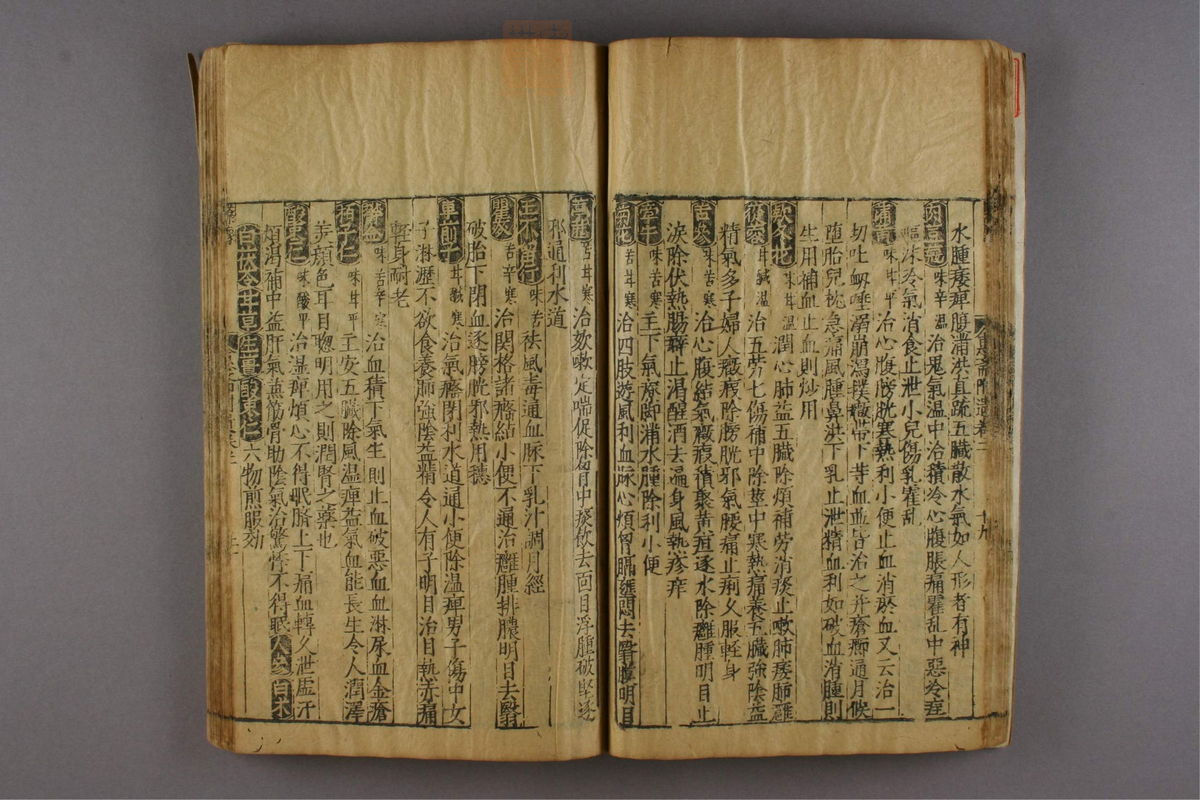 水腫痿痺腹滿洪直疏五臟散水氣如人形者有神
肉豆蔻味辛溫治鬼氣溫中治積冷心腹脹痛霍乱中惡冷疰
嘔沫冷氣消食止泄小兒傷乳霍乱
蒲黃味甘平治心腹膀胱寒熱利小便止血消瘀血又云治一
切吐衂唾溺崩瀉撲癥帶下等血並皆治之并瘡癤通月候
堕胎兒枕急痛風腫鼻洪下乳止泄精血利如破血消腫則
生用補血止血則炒用
款冬花味甘溫潤心肺益五臟除煩補劳消痰止嗽肺痿肺癰
從容甘鹹溫治五劳七傷補中除莖中寒熱痛養五臟強陰益
精氣多子婦人癥瘕除膀胱邪氣腰痛止痢久服軽身
苦參味苦寒治心腹結氣癥瘕積聚黃疸逐水除癰腫明目止
淚除伏熱腸癖止渴醒酒去遍身風熱疹痒
牽牛味苦寒主下氣療脚滿水腫除利小便
菊花苦甘寒治四肢遊風利血脉心煩胷膈壅悶去醫膜明目
苦甘寒治欬嗽定喘促除胷中痰飲去面目浮腫破堅逐
邪通利水道
王不留行味苦祛風毒通血脉下乳汁調月經
瞿麥苦辛寒治関格諸癃結小便不通治癰腫排膿明目去翳
破胎下閉血逐膀胱邪熱用穗
車前子甘鹹寒治氣癃閉利水道通小便除溫痺男子傷中女
子淋瀝不欲食養肺強陰益精令人有子明目治目熱赤痛
軽身耐老
欎金味苦辛寒治血積下氣生則止血破惡血血淋尿血金瘡
栢子仁味甘平主安五臟除風溫痺益氣血能長生令人潤澤
养顏色耳目聦明用之則潤腎之藥也
酸棗仁味酸平治溫痺煩心不得眠臍上下痛血轉久泄虛汗
煩渴補中益肝氣煎筋骨助陰氣治驚悸不得眠人參白术
白伏苓甘草生薑酸棗仁六物煎服効